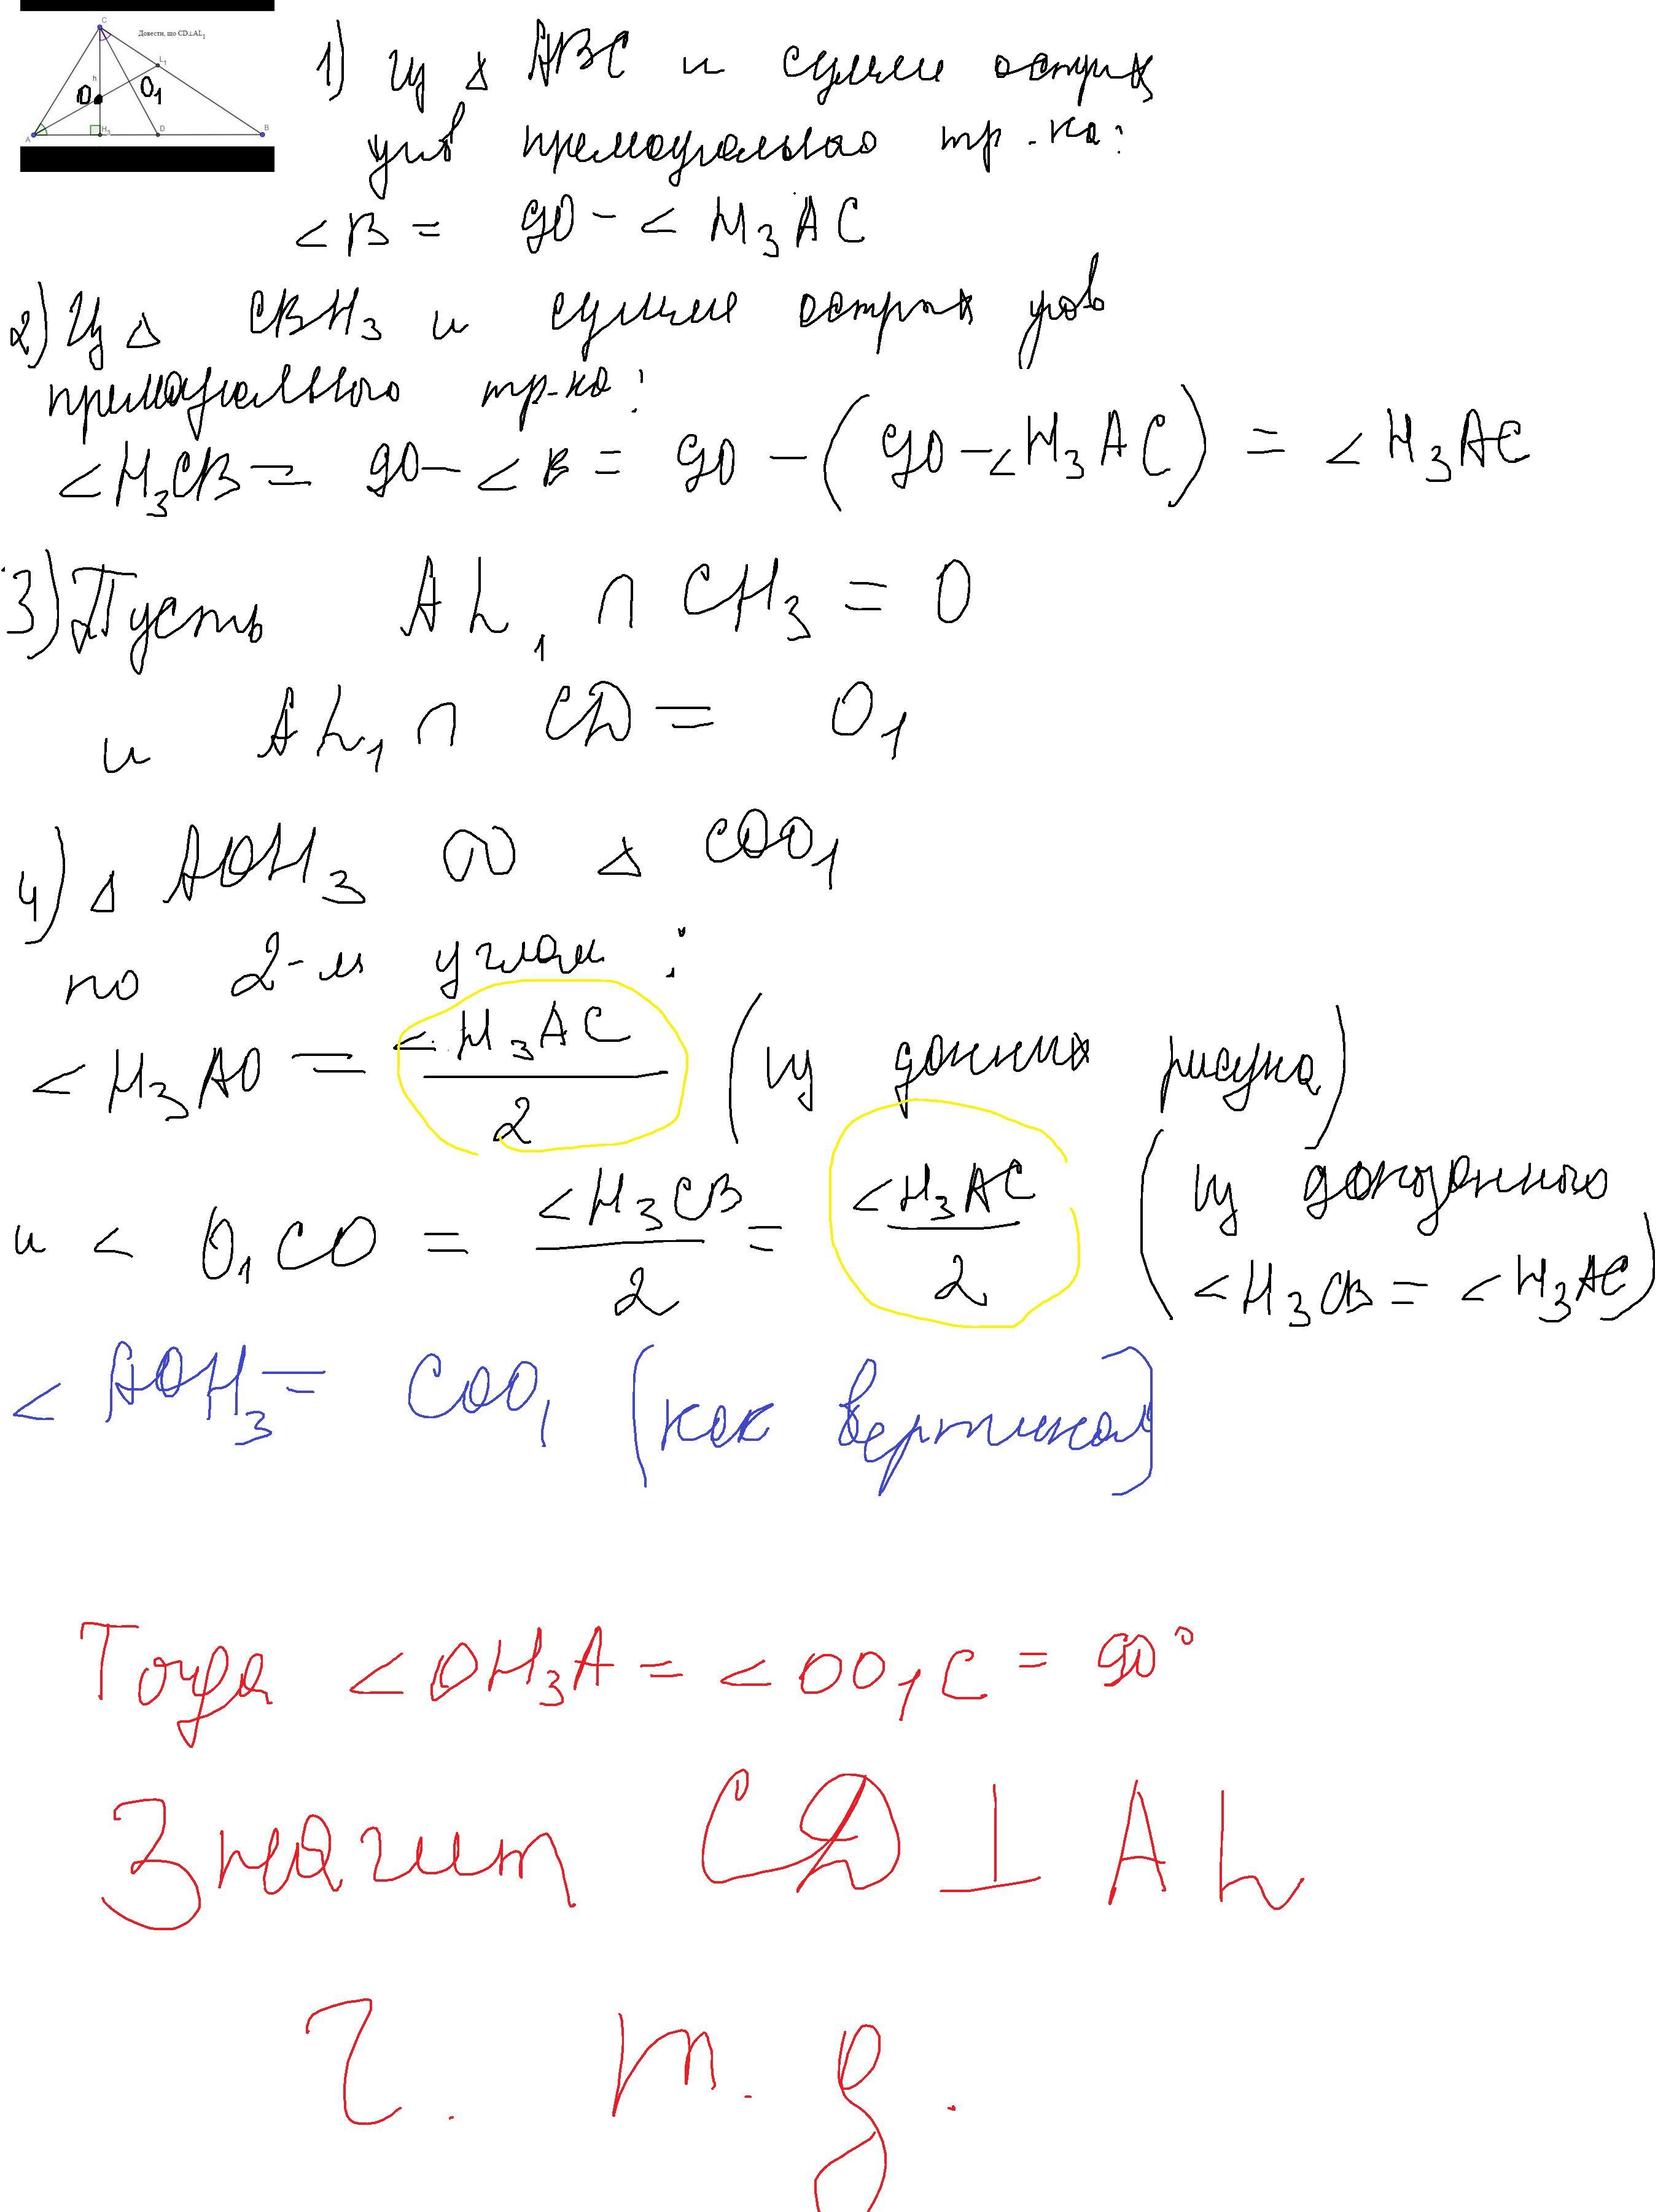 Довести, що CD⊥AL₁
C
L₁
h
O
O₁
A
H₃
D
B
1) Из △ ABC и суммы острых
углов прямоугольно тр-ка:
<B = 90 - < H₃AC
2) Из △ CBH₃ и суммы острых углов
прямоугольного тр-ка:
<H₃CB = 90 - <B = 90 - (90 - <H₃AC) = <H₃AC
3) Пусть AL₁ ∩ CH₃ = O
и AL₁ ∩ CD = O₁
4) △ AOH₃ ∞ △ COO₁
по 2-м углам:
<H₃AO = <H₃AC / 2 (из данных рисунка)
и < O₁CO = <H₃CB / 2 = <H₃AC / 2 (из доказанного
<H₃CB = <H₃AC)
< AOH₃ = COO₁ (как вертикал)
Тогда <OH₃A = <OO₁C = 90°
Значит CD ⊥ AL
Ч. т. д.